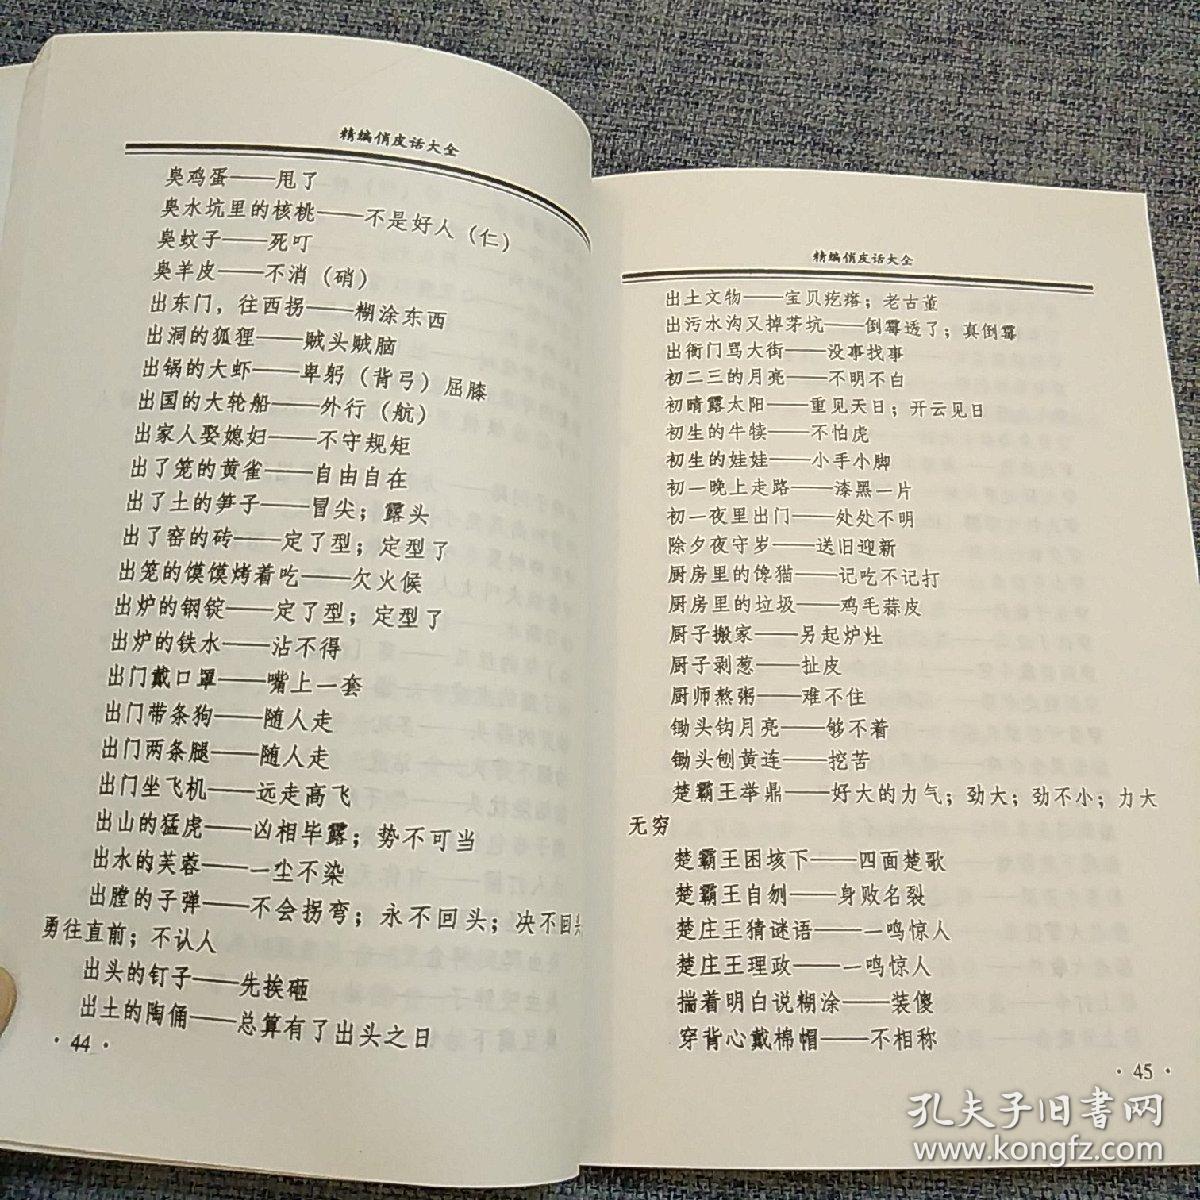 精编俏皮话大全
臭鸡蛋——甩了
臭水坑里的核桃——不是好人（仁）
臭蚊子——死叮
臭羊皮——不消（硝）
出东门，往西拐——糊涂东西
出洞的狐狸——贼头贼脑
出锅的大虾——卑躬（背弓）屈膝
出国的大轮船——外行（航）
出家人娶媳妇——不守规矩
出了笼的黄雀——自由自在
出了土的笋子——冒尖；露头
出了窑的砖——定了型；定型了
出笼的馍馍烤着吃——欠火候
出炉的钢锭——定了型；定型了
出炉的铁水——沾不得
出门戴口罩——嘴上一套
出门带条狗——随人走
出门两条腿——随人走
出门坐飞机——远走高飞
出山的猛虎——凶相毕露；势不可当
出水的芙蓉——一尘不染
出膛的子弹——不会拐弯；永不回头；决不回头
勇往直前；不认人
出头的钉子——先挨砸
出土的陶俑——总算有了出头之日
·44·
精编俏皮话大全
出土文物——宝贝疙瘩；老古董
出污水沟又掉茅坑——倒霉透了；真倒霉
出衙门骂大街——没事找事
初二三的月亮——不明不白
初晴露太阳——重见天日；开云见日
初生的牛犊——不怕虎
初生的娃娃——小手小脚
初一晚上走路——漆黑一片
初一夜里出门——处处不明
除夕夜守岁——送旧迎新
厨房里的馋猫——记吃不记打
厨房里的垃圾——鸡毛蒜皮
厨子搬家——另起炉灶
厨子剥葱——扯皮
厨师熬粥——难不住
锄头钩月亮——够不着
锄头刨黄连——挖苦
楚霸王举鼎——好大的力气；劲大；劲不小；力大
无穷
楚霸王困垓下——四面楚歌
楚霸王自刎——身败名裂
楚庄王猜谜语——一鸣惊人
楚庄王理政——一鸣惊人
揣着明白说糊涂——装傻
穿背心戴棉帽——不相称
·45·
孔夫子旧书网
www.kongfz.com